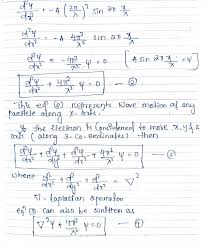 d²ψ/dx² = -A (2π/λ)² sin 2π x/λ
d²ψ/dx² = -A 4π²/λ² sin 2π x/λ
d²ψ/dx² = -4π²/λ² ψ [A sin 2π x/λ = ψ]
d²ψ/dx² + 4π²/λ² ψ = 0 — ②
This eqn ② represents wave motion of any
particle along x-axis.
If the electron is considered to move x, y & z
axis (along 3-co-ordinates) then
d²ψ/dx² + d²ψ/dy² + d²ψ/dz² + 4π²/λ² ψ = 0 — ③
where d²/dx² + d²/dy² + d²/dz² = ∇²
∇ - Laplacian operator
eqn ③ can also be written as
∇²ψ + 4π²/λ² ψ = 0 — ④